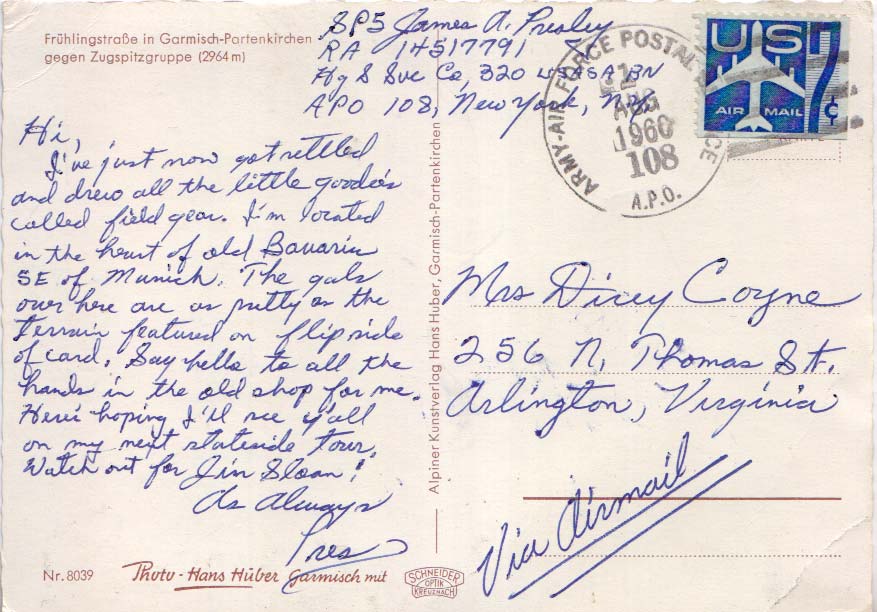 Frühlingstraße in Garmisch-Partenkirchen
gegen Zugspitzgruppe (2964 m)
SP5 James A. Presley
RA 14517791
Hq & Svc Co, 320 USASA BN
APO 108, New York, N.Y.
ARMY-AIR FORCE POSTAL SERVICE
1
AUG
1960
108
A.P.O.
US
AIR MAIL
7¢
Hi,
I've just now got settled
and drew all the little goodies
called field gear. I'm located
in the heart of old Bavaria
SE of Munich. The gals
over here are as pretty as the
terrain featured on flip side
of card. Say hello to all the
hands in the old shop for me.
Here's hoping I'll see y'all
on my next stateside tour.
Watch out for Jim Sloan!
As Always
Pres
Alpiner Kunstverlag Hans Huber, Garmisch-Partenkirchen
Mrs Dicey Coyne
256 N. Thomas St.
Arlington, Virginia
Via Airmail
Nr. 8039
Photo - Hans Huber Garmisch mit
SCHNEIDER
OPTIK
KREUZNACH